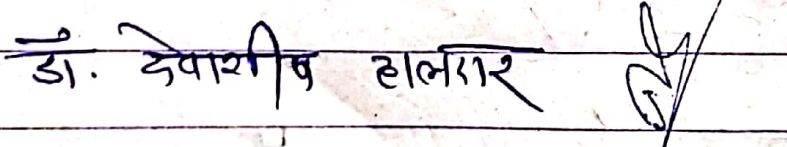 डॉ. देवाशीष हालदार